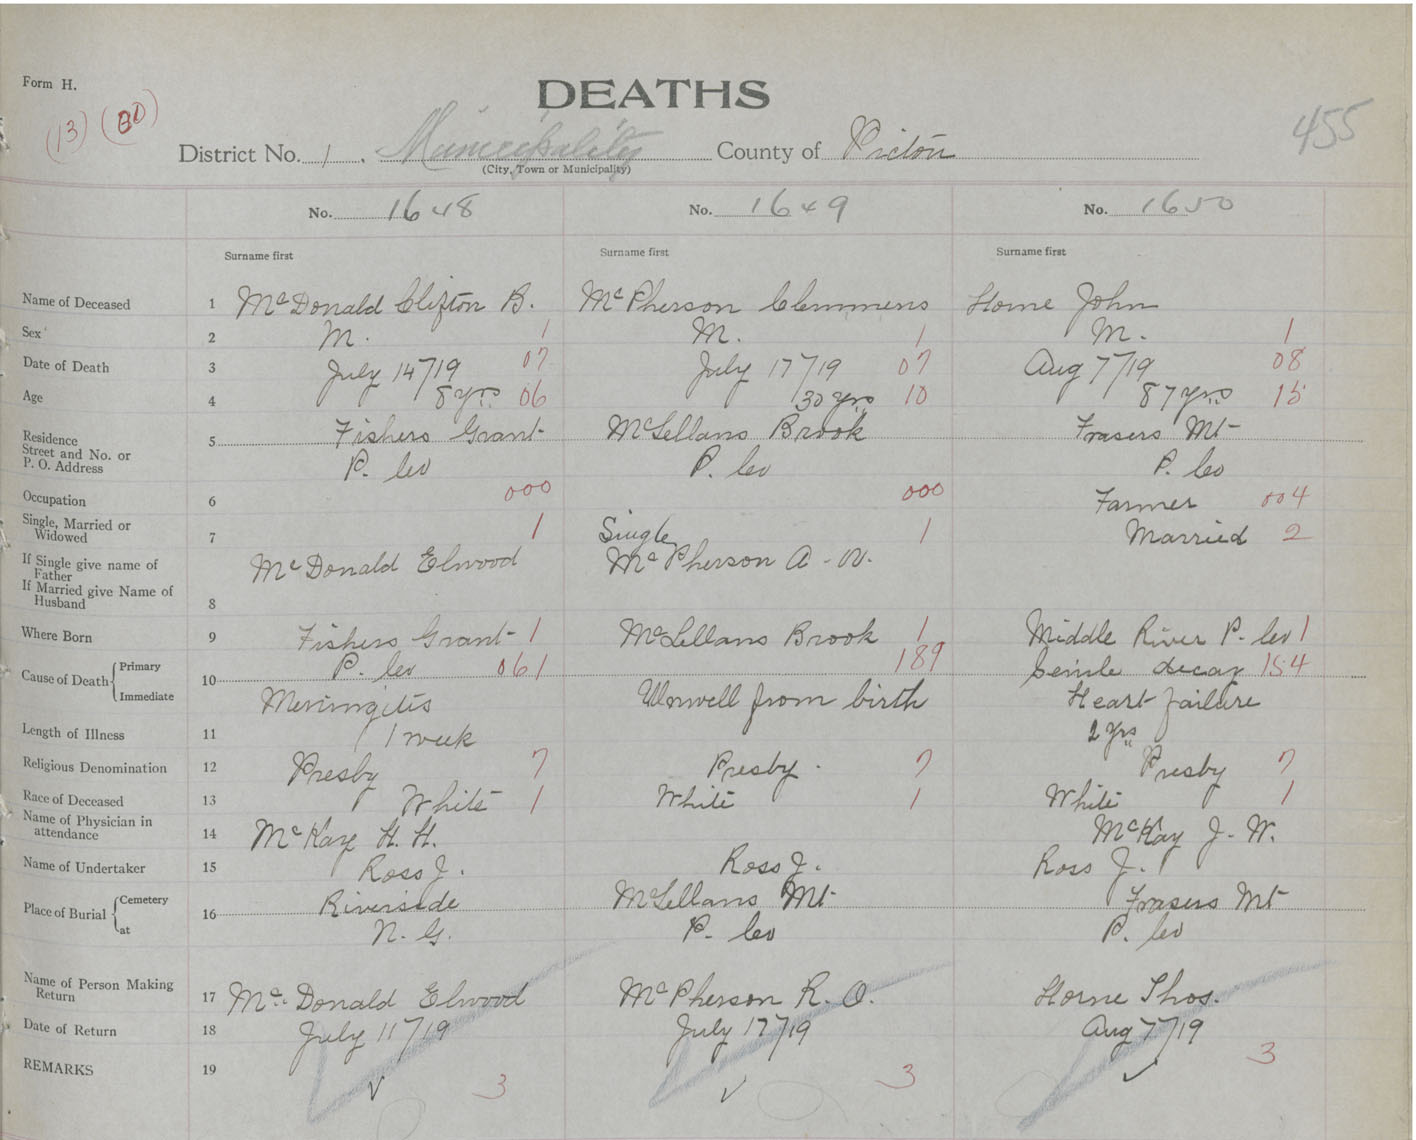 Form H.
(13) (80)
DEATHS
455
District No. 1. Municipality County of Pictou
(City, Town or Municipality)
No. 1648 No. 1649 No. 1650
Surname first Surname first Surname first
Name of Deceased 1 McDonald Clifton B. McPherson Clemmens Horne John
Sex 2 M. 1 M. 1 M. 1
Date of Death 3 July 14/19 07 July 17/19 07 Aug 7/19 08
Age 4 8 yrs 06 30 yrs 10 87 yrs 15
Residence Street and No. or P. O. Address 5 Fishers Grant McLellans Brook Frasers Mt
P. Co P. Co P. Co
Occupation 6 000 000 Farmer 004
Single, Married or Widowed 7 1 Single 1 Married 2
If Single give name of Father McDonald Elwood McPherson A. W.
If Married give Name of Husband 8
Where Born 9 Fishers Grant 1 McLellans Brook 1 Middle River P. Co 1
P. Co 061 189 Senile decay 154
Cause of Death { Primary Immediate 10 Meningitis Unwell from birth Heart failure
Length of Illness 11 1 week 2 yrs
Religious Denomination 12 Presby 7 Presby. 7 Presby 7
Race of Deceased 13 White 1 White 1 White 1
Name of Physician in attendance 14 McKay H. H. McKay J. W.
Name of Undertaker 15 Ross J. Ross J. Ross J.
Place of Burial { Cemetery at 16 Riverside McLellans Mt Frasers Mt
N. G. P. Co P. Co
Name of Person Making Return 17 McDonald Elwood McPherson R. O. Horne Thos.
Date of Return 18 July 11/19 July 17/19 Aug 7/19
REMARKS 19 ✓ 3 ✓ 3 ✓ 3